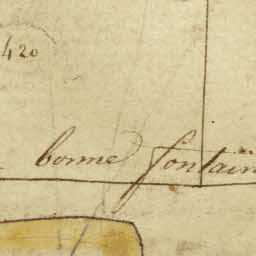 420
bonne fontain